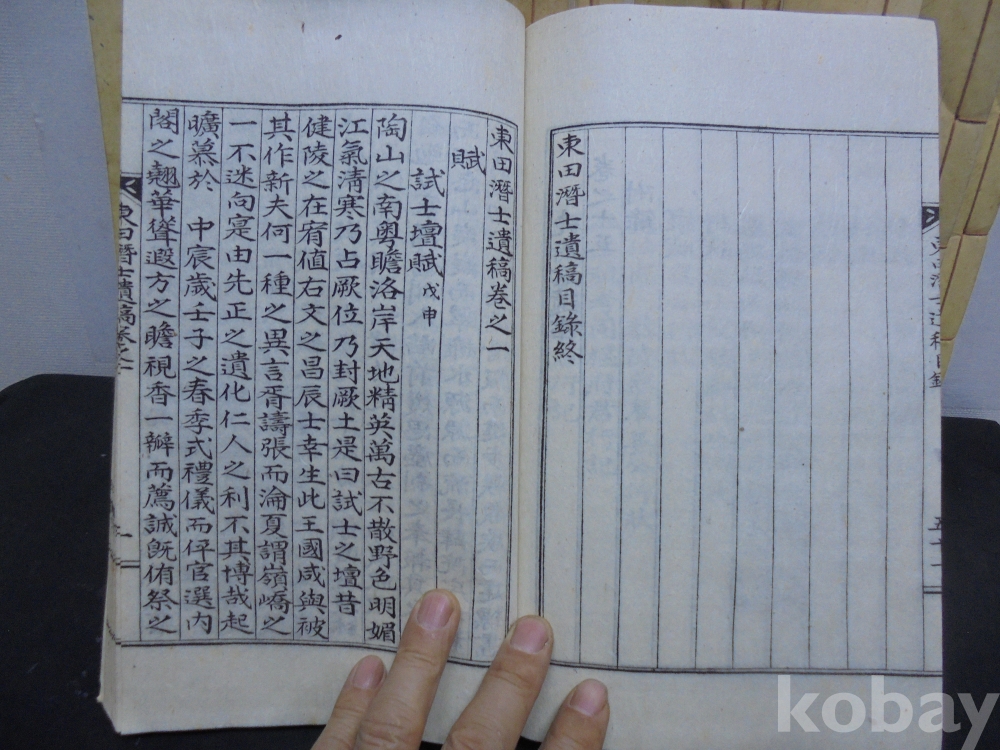 東田潛士遺稿目錄終
東田潛士遺稿卷之一
賦
試士壇賦 戊申
陶山之南粤瞻洛岸天地精英萬古不散野色明媚
江氣清寒乃占厥位乃封厥土是曰試士之壇昔
健陵之在宥值右文之昌辰士幸生此王國咸與被
其作新夫何一種之異言胥譸張而淪夏謂嶺嶠之
一不迷向寔由先正之遺化仁人之利不其博哉起
曠慕於 中宸歲壬子之春季式禮儀而伻官選內
閣之翹華聳遐方之瞻視香一瓣而薦誠旣侑祭之
東田潛士遺稿卷之一
一
kobay